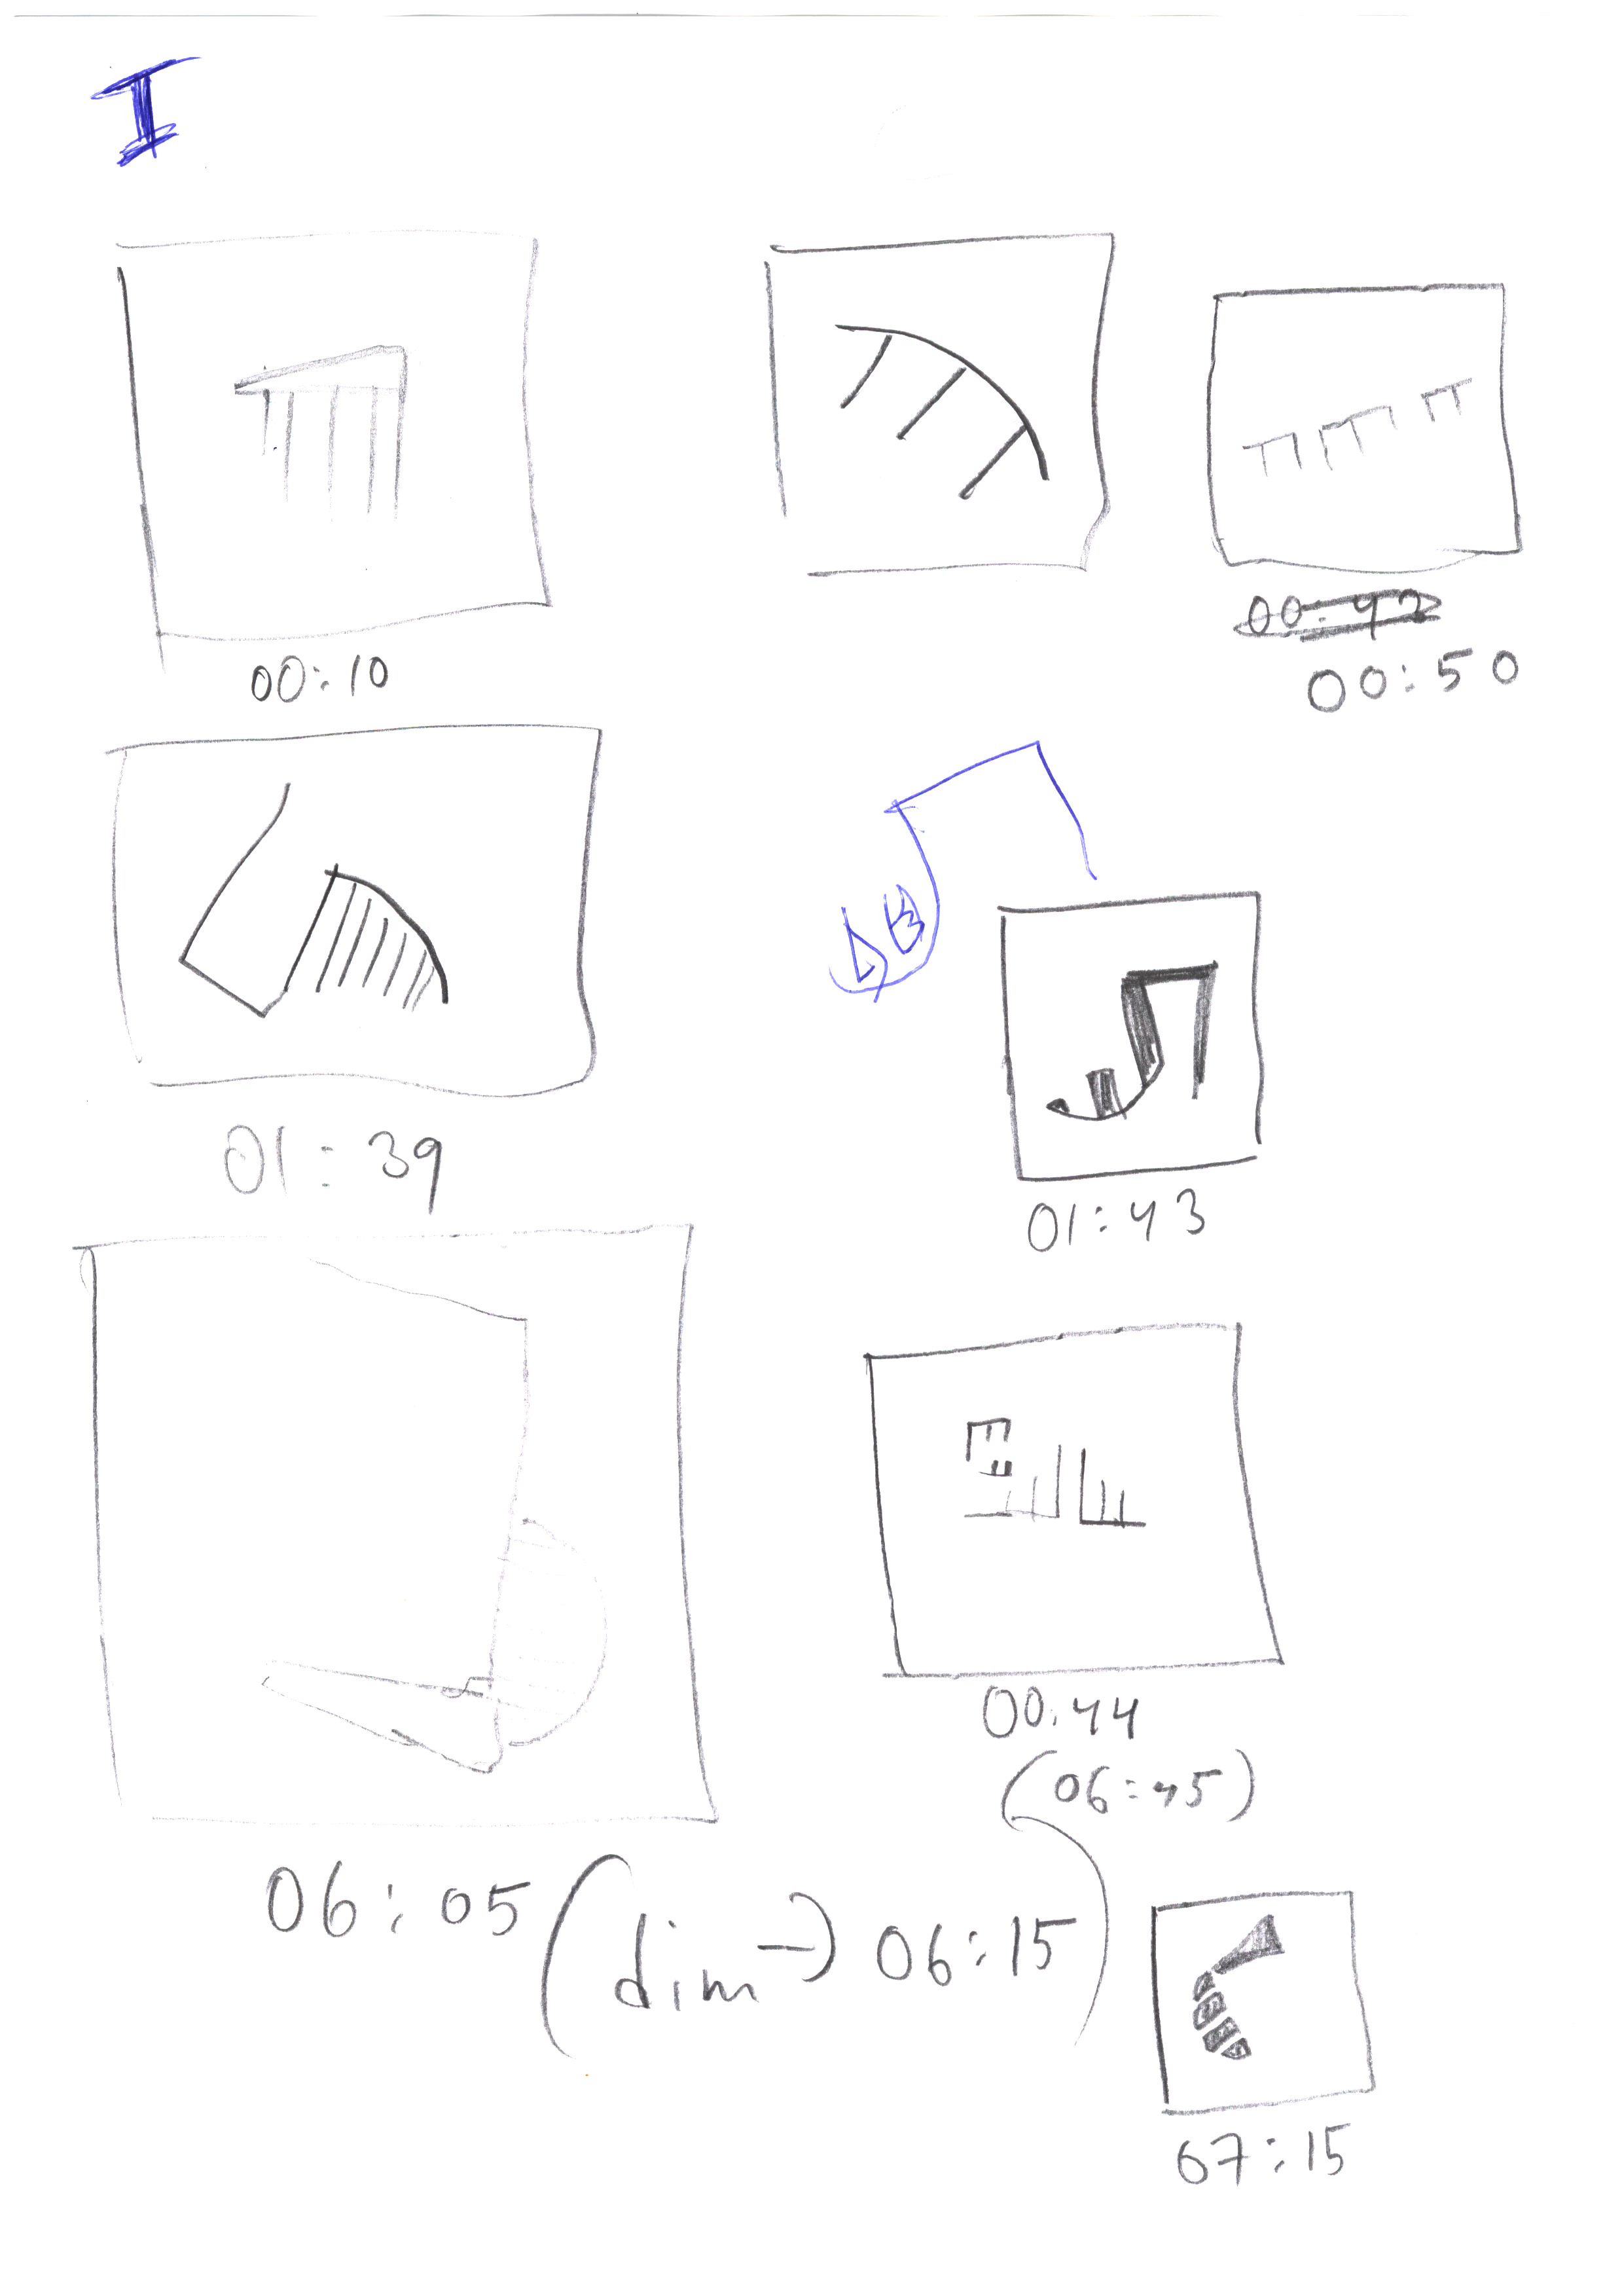 I
00:10
00:42
00:50
01:39
01:43
00:44
(06:45)
06:05 (dim →) 06:15)
07:15